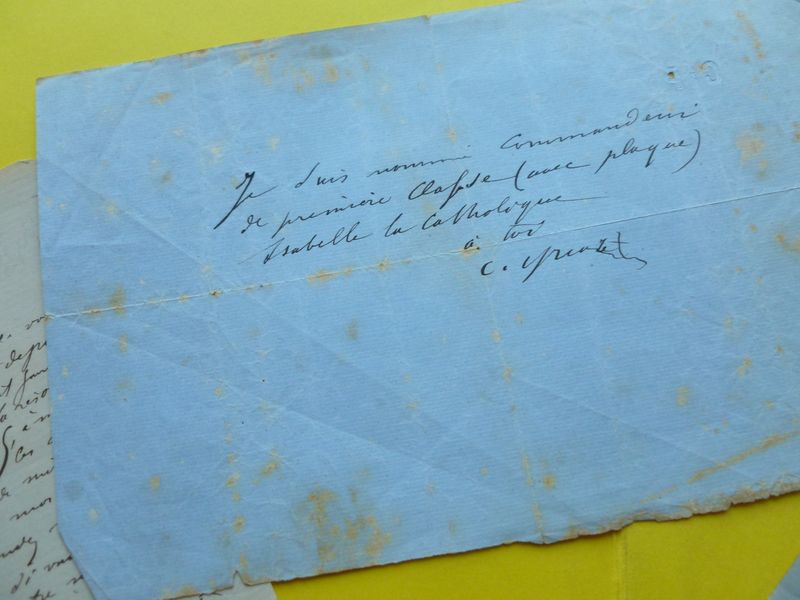 Je suis nommé commandeur
de première classe (avec plaque)
Isabelle la Catholique
à toi
C.
vo
depu
la réso
de mi
mon
di vou